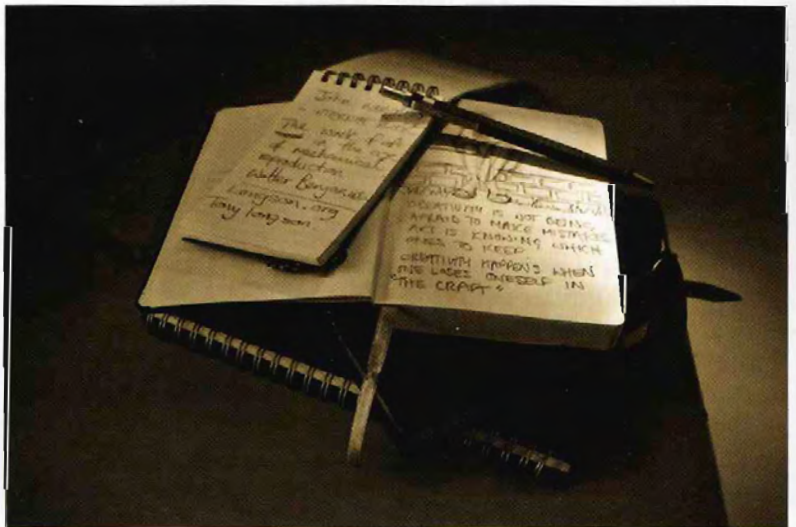 John
The work of art
in the age
of mechanical
reproduction
Walter Benjamin
Longson.org
Tony Longson
CREATIVITY IS NOT BEING
AFRAID TO MAKE MISTAKES
ART IS KNOWING WHICH
ONES TO KEEP
CREATIVITY HAPPENS WHEN
ONE LOSES ONESELF IN
"THE CRAFT"